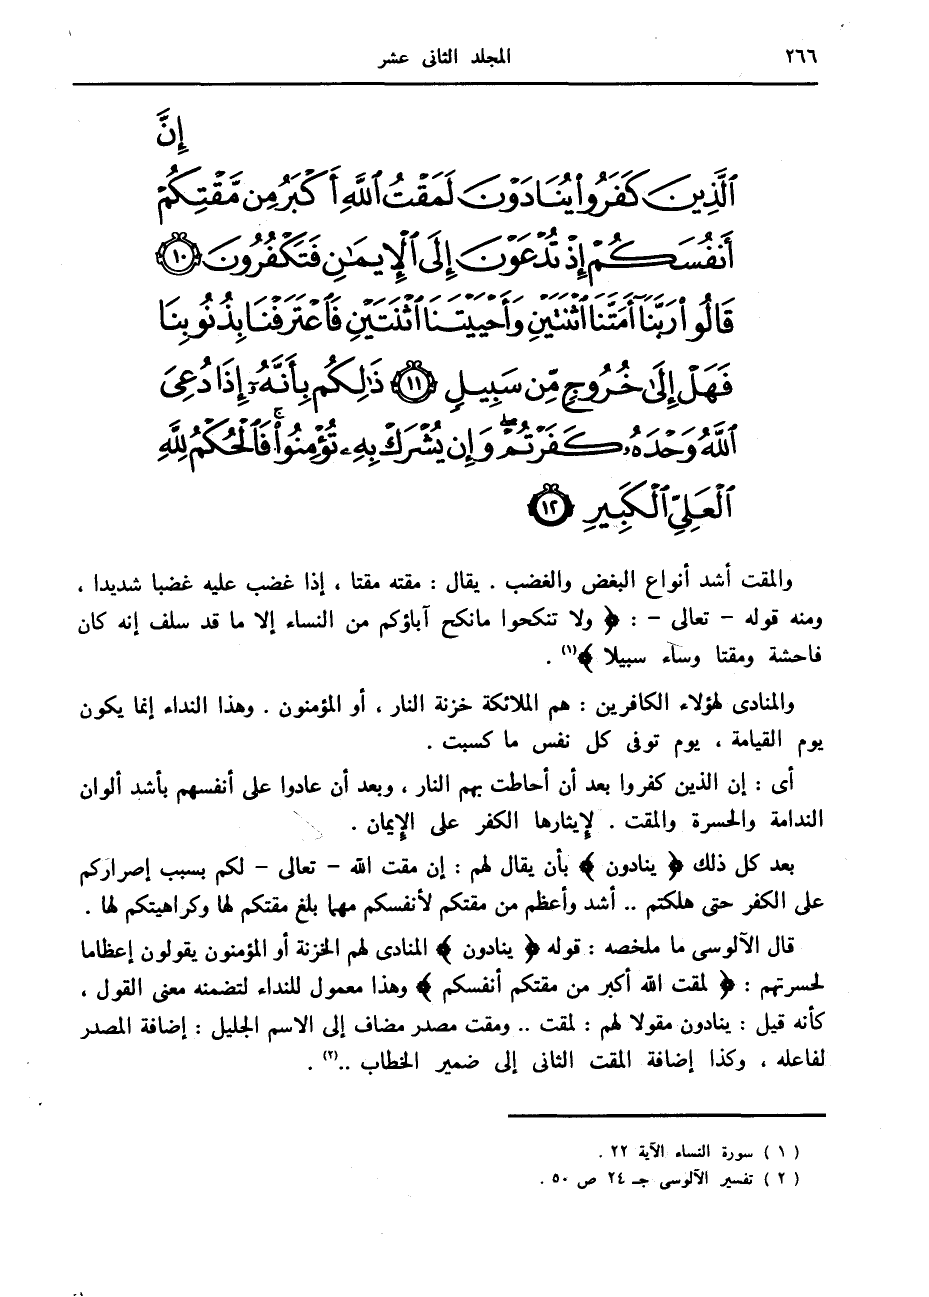 ٢٦٦ المجلد الثانى عشر
إِنَّ
ٱلَّذِينَ كَفَرُوا۟ يُنَادَوْنَ لَمَقْتُ ٱللَّهِ أَكْبَرُ مِن مَّقْتِكُمْ
أَنفُسَكُمْ إِذْ تُدْعَوْنَ إِلَى ٱلْإِيمَٰنِ فَتَكْفُرُونَ ١٠
قَالُوا۟ رَبَّنَآ أَمَتَّنَا ٱثْنَتَيْنِ وَأَحْيَيْتَنَا ٱثْنَتَيْنِ فَٱعْتَرَفْنَا بِذُنُوبِنَا
فَهَلْ إِلَىٰ خُرُوجٍ مِّن سَبِيلٍ ١١ ذَٰلِكُم بِأَنَّهُۥٓ إِذَا دُعِىَ
ٱللَّهُ وَحْدَهُۥ كَفَرْتُمْ ۖ وَإِن يُشْرَكْ بِهِۦ تُؤْمِنُوا۟ ۚ فَٱلْحُكْمُ لِلَّهِ
ٱلْعَلِىِّ ٱلْكَبِيرِ ١٢
والمقت أشد أنواع البغض والغضب . يقال : مقته مقتا ، إذا غضب عليه غضبا شديدا ،
ومنه قوله – تعالى – : ﴿ ولا تنكحوا مانكح آباؤكم من النساء إلا ما قد سلف إنه كان
فاحشة ومقتا وساء سبيلا ﴾(١) .
والمنادى لهؤلاء الكافرين : هم الملائكة خزنة النار ، أو المؤمنون . وهذا النداء إنما يكون
يوم القيامة ، يوم توفى كل نفس ما كسبت .
أى : إن الذين كفروا بعد أن أحاطت بهم النار ، وبعد أن عادوا على أنفسهم بأشد ألوان
الندامة والحسرة والمقت . لإيثارها الكفر على الإيمان .
بعد كل ذلك ﴿ ينادون ﴾ بأن يقال لهم : إن مقت الله – تعالى – لكم بسبب إصراركم
على الكفر حتى هلكتم .. أشد وأعظم من مقتكم لأنفسكم مهما بلغ مقتكم لها وكراهيتكم لها .
قال الآلوسى ما ملخصه : قوله ﴿ ينادون ﴾ المنادى لهم الخزنة أو المؤمنون يقولون إعظاما
لحسرتهم : ﴿ لمقت الله أكبر من مقتكم أنفسكم ﴾ وهذا معمول للنداء لتضمنه معنى القول ،
كأنه قيل : ينادون مقولا لهم : لمقت .. ومقت مصدر مضاف إلى الاسم الجليل : إضافة المصدر
لفاعله ، وكذا إضافة المقت الثانى إلى ضمير الخطاب ..(٢) .
( ١ ) سورة النساء الآية ٢٢ .
( ٢ ) تفسير الآلوسى جـ ٢٤ ص ٥٠ .